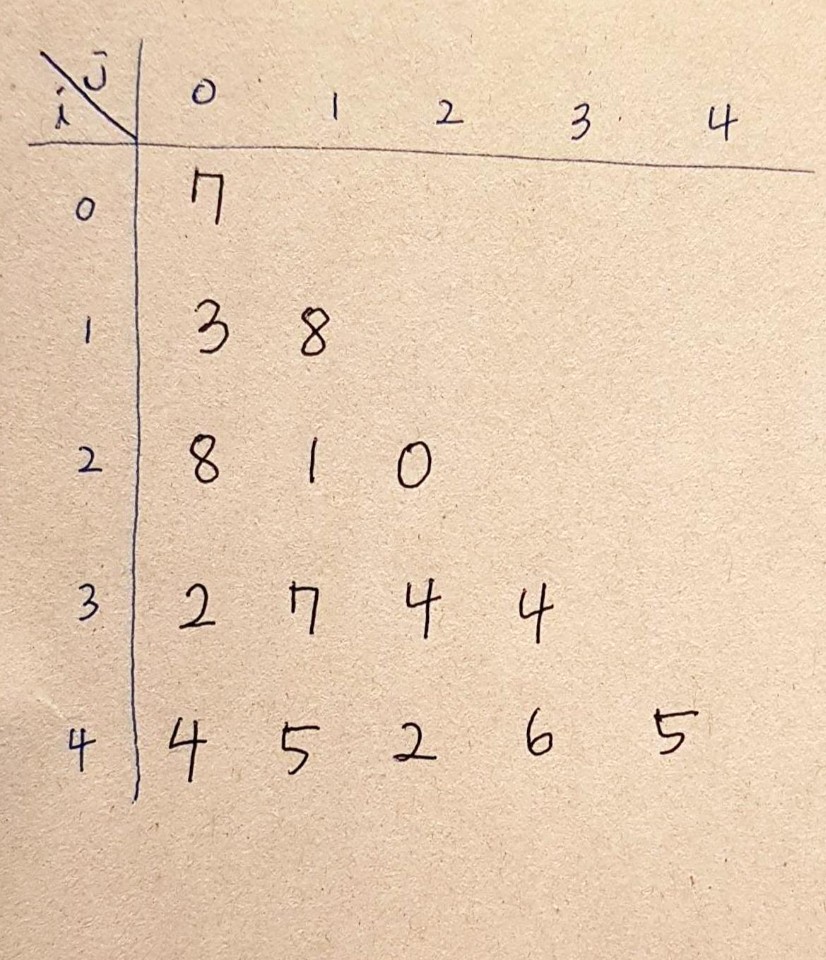 i j 0 1 2 3 4
0 7
1 3 8
2 8 1 0
3 2 7 4 4
4 4 5 2 6 5